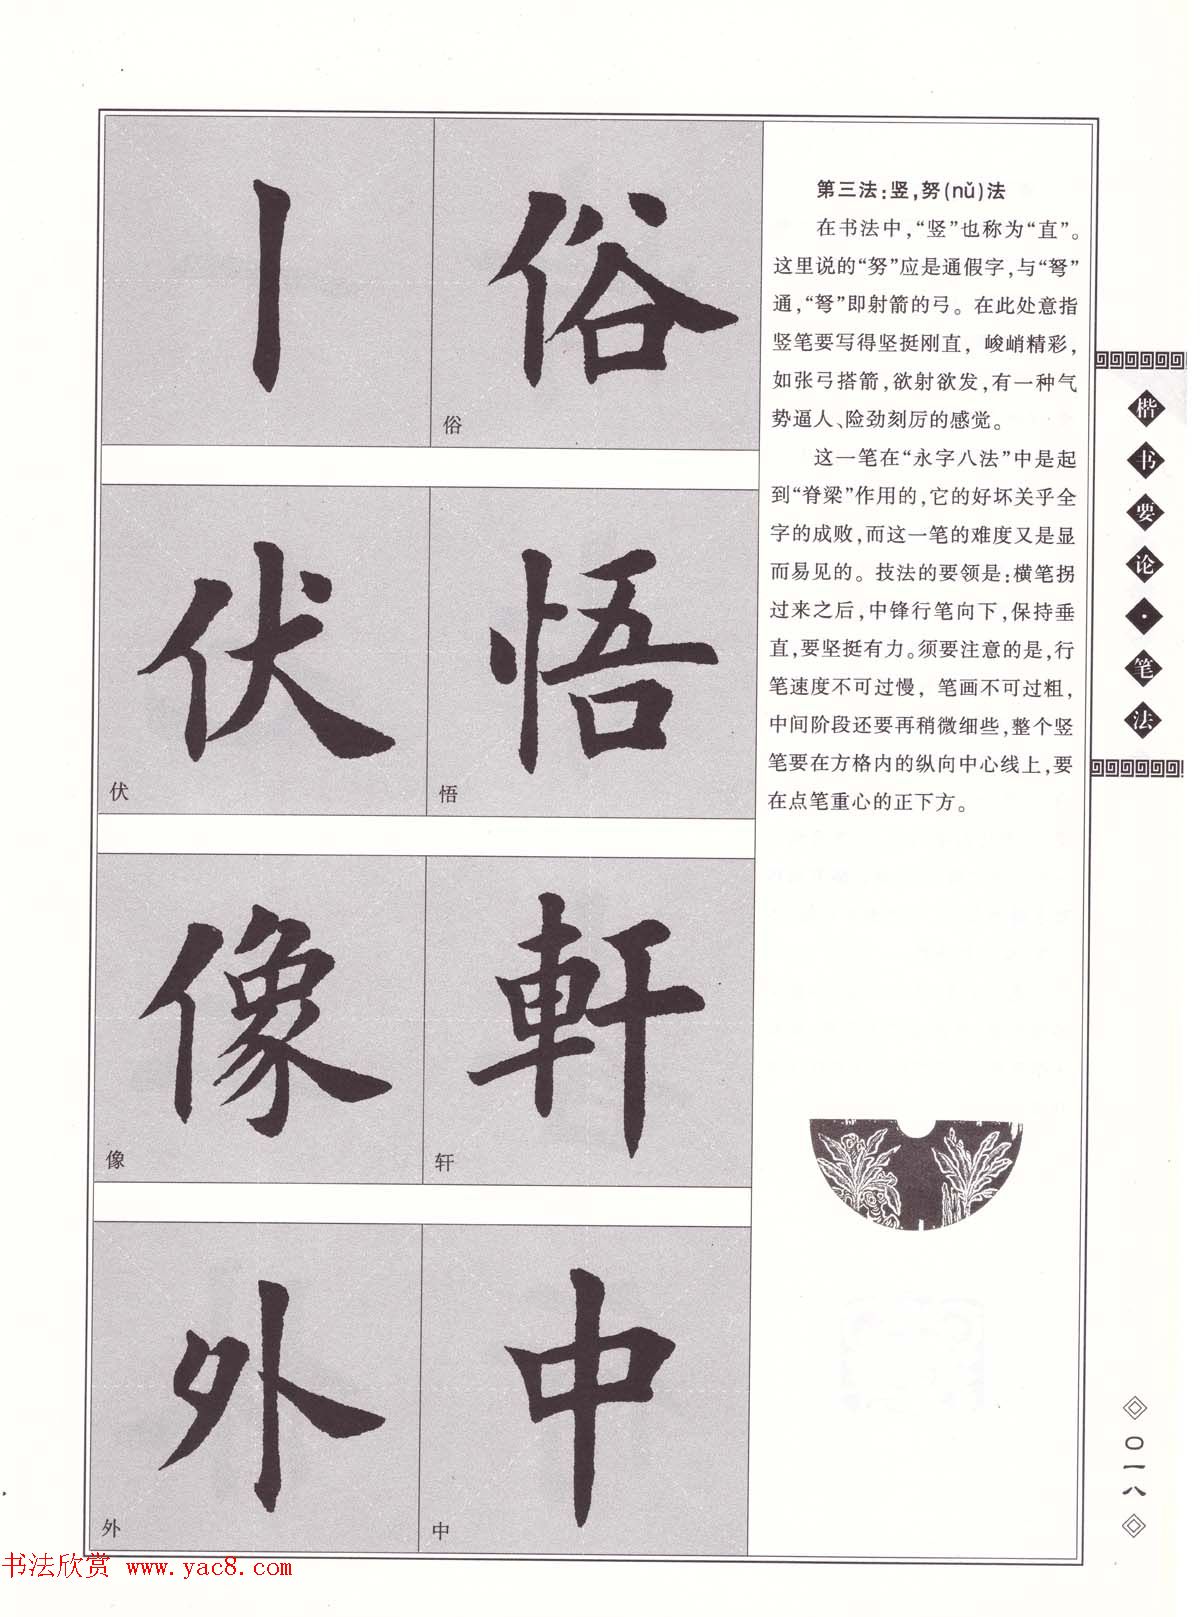 丨
俗
俗
伏
伏
悟
悟
像
像
軒
轩
外
外
中
中
第三法:竖,努(nǔ)法
在书法中,“竖”也称为“直”。
这里说的“努”应是通假字,与“弩”
通,“弩”即射箭的弓。在此处意指
竖笔要写得坚挺刚直,峻峭精彩,
如张弓搭箭,欲射欲发,有一种气
势逼人、险劲刻厉的感觉。
这一笔在“永字八法”中是起
到“脊梁”作用的,它的好坏关乎全
字的成败,而这一笔的难度又是显
而易见的。技法的要领是:横笔拐
过来之后,中锋行笔向下,保持垂
直,要坚挺有力。须要注意的是,行
笔速度不可过慢,笔画不可过粗,
中间阶段还要再稍微细些,整个竖
笔要在方格内的纵向中心线上,要
在点笔重心的正下方。
楷书要论·笔法
〇一八
书法欣赏 www.yac8.com